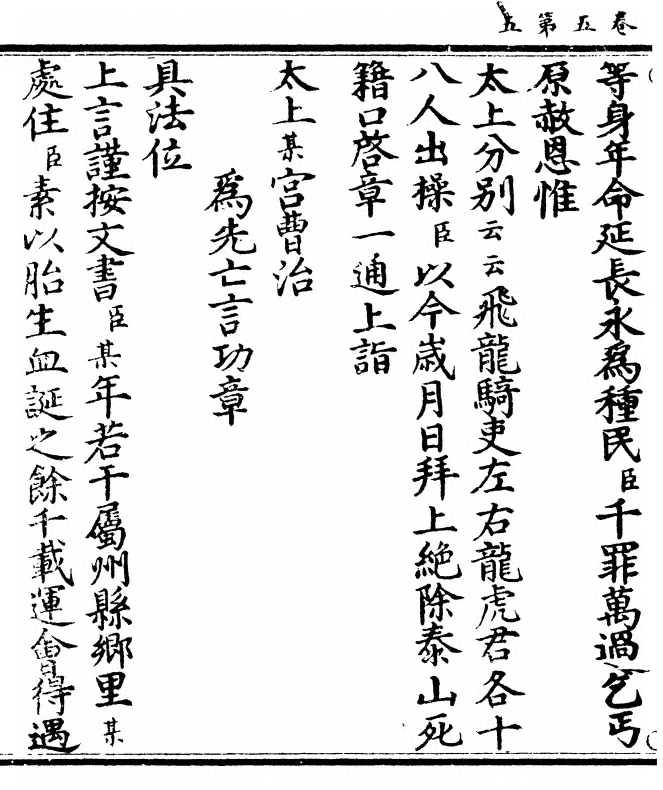 卷五第五
等身年命延長永爲種民臣千罪萬過乞丐
原赦恩惟
太上分别云云飛龍騎吏左右龍虎君各十
八人出操臣以今歲月日拜上絶除泰山死
籍口啓章一通上詣
太上某宮曹治
爲先亡言功章
具法位
上言謹按文書臣某年若干屬州縣鄉里某
處住臣素以胎生血誕之餘千載運會得遇